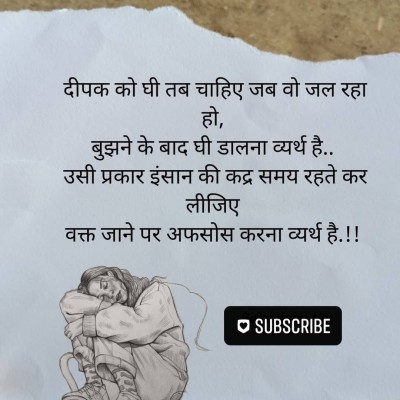 दीपक को घी तब चाहिए जब वो जल रहा
हो,
बुझने के बाद घी डालना व्यर्थ है..
उसी प्रकार इंसान की कद्र समय रहते कर
लीजिए
वक्त जाने पर अफसोस करना व्यर्थ है.!!
SUBSCRIBE